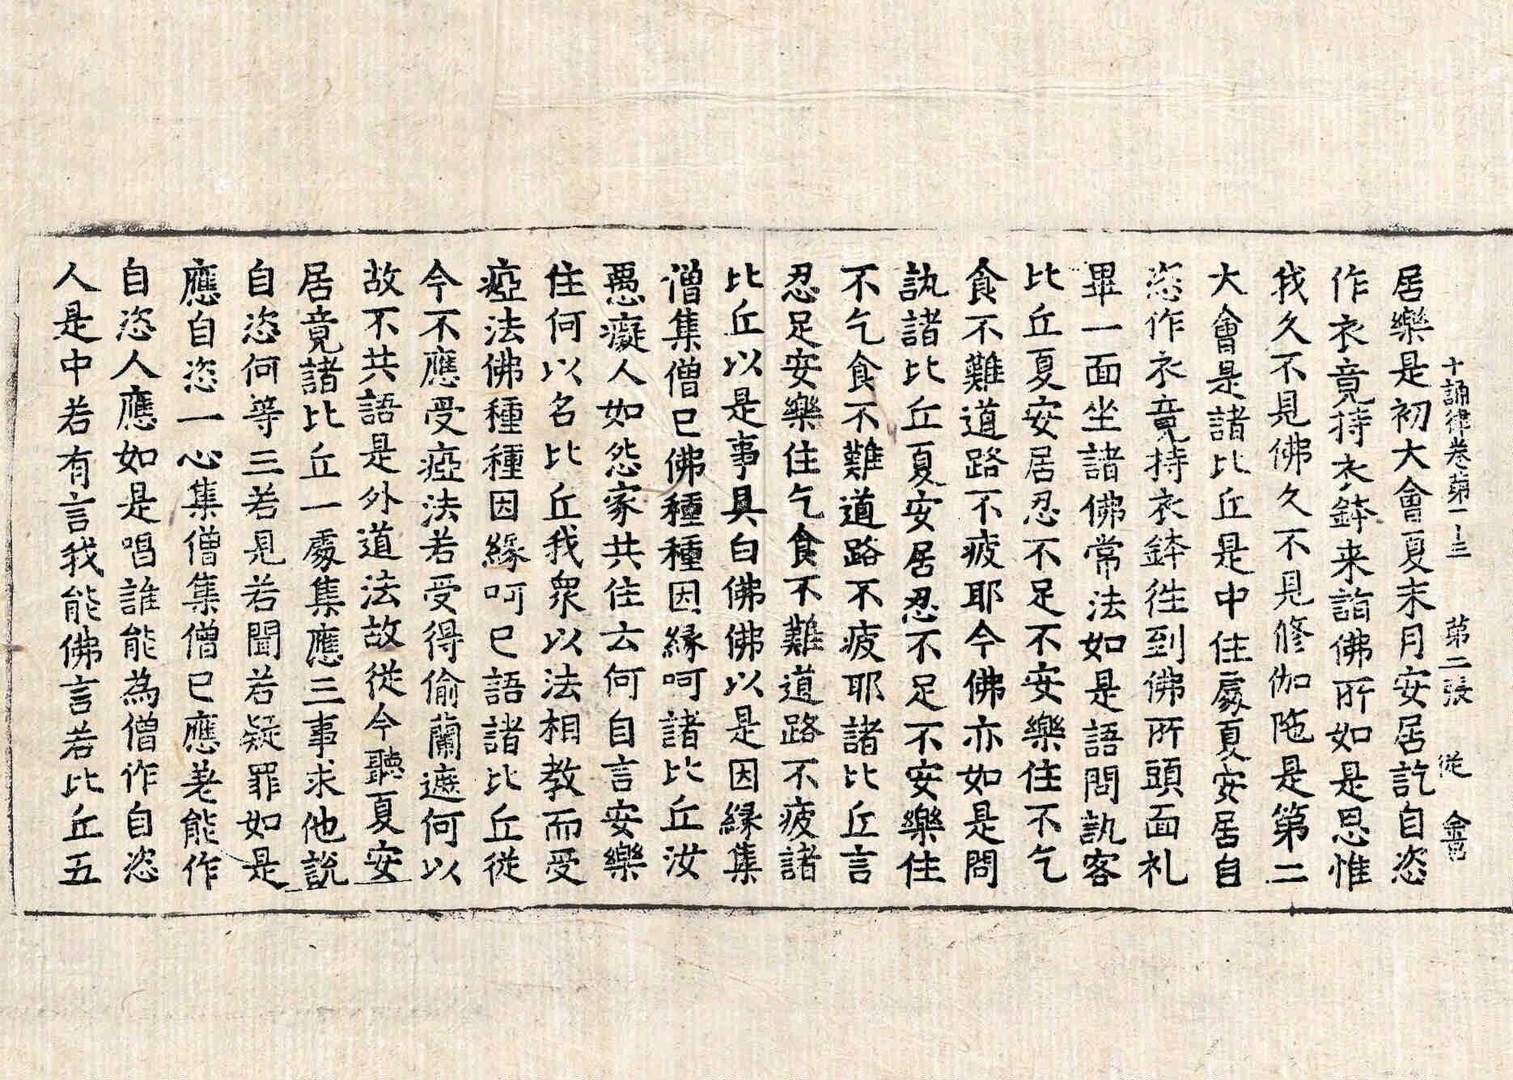 十誦律卷第二十三　第二張　從
居樂是初大會夏末月安居訖自恣
作衣竟持衣鉢来詣佛所如是思惟
我久不見佛久不見修伽陁是第二
大會是諸比丘是中住處夏安居自
恣作衣竟持衣鉢徃到佛所頭面礼
畢一面坐諸佛常法如是語問訙客
比丘夏安居忍不足不安樂住不乞
食不難道路不疲耶今佛亦如是問
訙諸比丘夏安居忍不足不安樂住
不乞食不難道路不疲耶諸比丘言
忍足安樂住乞食不難道路不疲諸
比丘以是事具白佛佛以是因縁集
僧集僧已佛種種因縁呵諸比丘汝
愚癡人如怨家共住云何自言安樂
住何以名比丘我衆以法相教而受
瘂法佛種種因縁呵已語諸比丘從
今不應受瘂法若受得偷蘭遮何以
故不共語是外道法故從今聽夏安
居竟諸比丘一處集應三事求他說
自恣何等三若見若聞若疑罪如是
應自恣一心集僧集僧已應差能作
自恣人應如是唱誰能為僧作自恣
人是中若有言我能佛言若比丘五